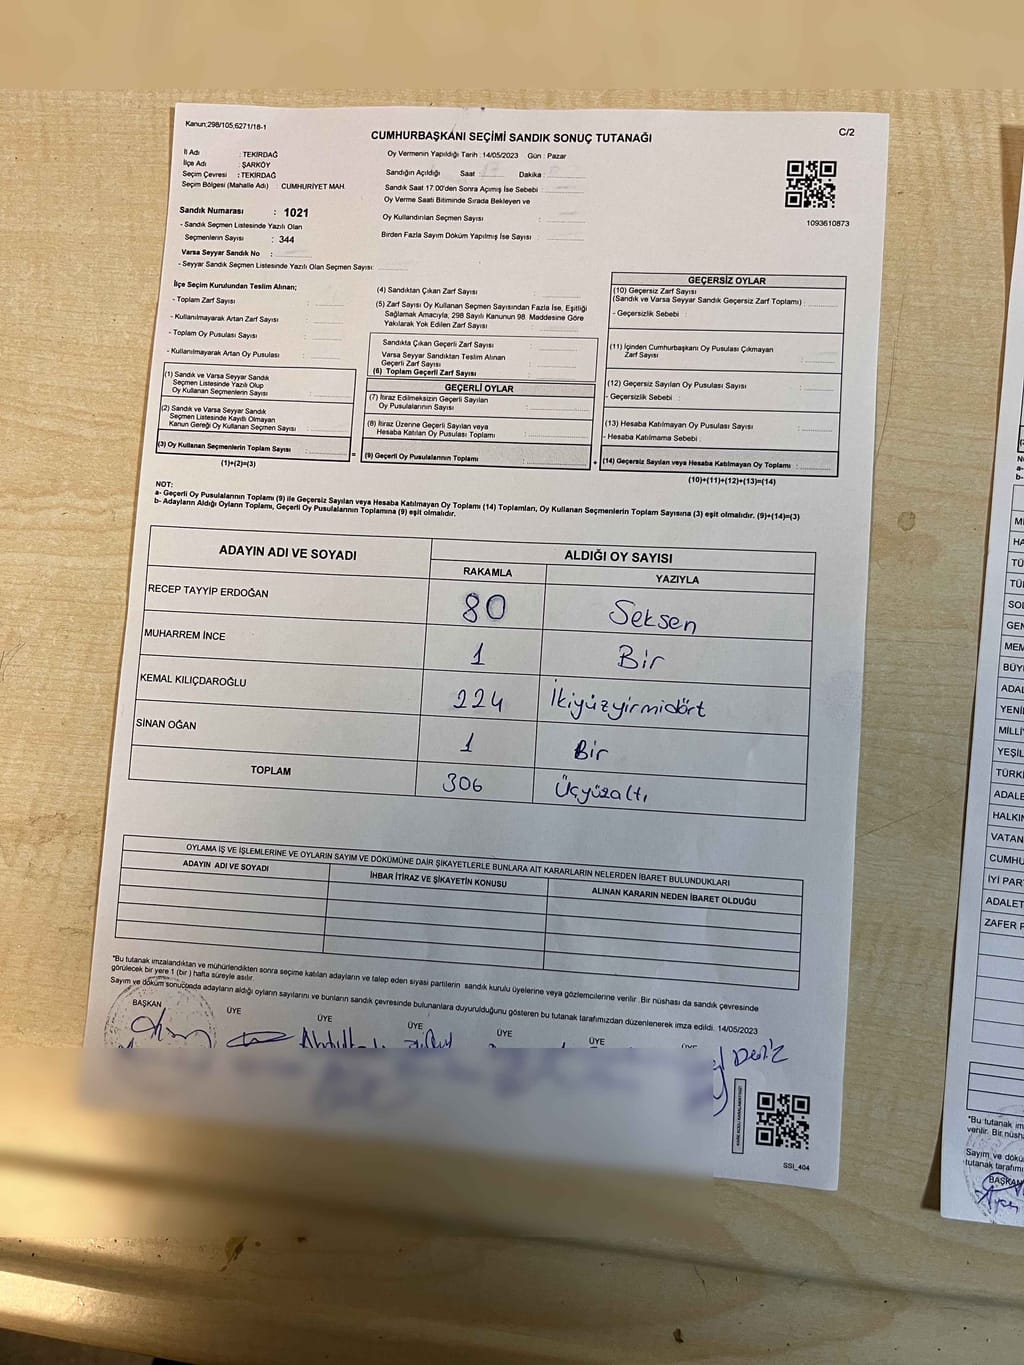 Kanun;298/105;6271/18-1
C/2
CUMHURBAŞKANI SEÇİMİ SANDIK SONUÇ TUTANAĞI
İl Adı : TEKİRDAĞ
İlçe Adı : ŞARKÖY
Seçim Çevresi : TEKİRDAĞ
Seçim Bölgesi (Mahalle Adı) : CUMHURİYET MAH.
Sandık Numarası : 1021
- Sandık Seçmen Listesinde Yazılı Olan
Seçmenlerin Sayısı : 344
Varsa Seyyar Sandık No :
- Seyyar Sandık Seçmen Listesinde Yazılı Olan Seçmen Sayısı:
Oy Vermenin Yapıldığı Tarih : 14/05/2023 Gün : Pazar
Sandığın Açıldığı Saat : Dakika :
Sandık Saat 17.00'den Sonra Açımış İse Sebebi :
Oy Verme Saati Bitiminde Sırada Bekleyen ve
Oy Kullandırılan Seçmen Sayısı :
Birden Fazla Sayım Döküm Yapılmış İse Sayısı :
1093610873
İlçe Seçim Kurulundan Teslim Alınan;
- Toplam Zarf Sayısı :
- Kullanılmayarak Artan Zarf Sayısı :
- Toplam Oy Pusulası Sayısı :
- Kullanılmayarak Artan Oy Pusulası :
(1) Sandık ve Varsa Seyyar Sandık
Seçmen Listesinde Yazılı Olup
Oy Kullanan Seçmenlerin Sayısı :
(2) Sandık ve Varsa Seyyar Sandık
Seçmen Listesinde Kayıtlı Olmayan
Kanun Gereği Oy Kullanan Seçmen Sayısı :
(3) Oy Kullanan Seçmenlerin Toplam Sayısı :
(1)+(2)=(3)
(4) Sandıktan Çıkan Zarf Sayısı :
(5) Zarf Sayısı Oy Kullanan Seçmen Sayısından Fazla İse, Eşitliği
Sağlamak Amacıyla; 298 Sayılı Kanunun 98. Maddesine Göre
Yakılarak Yok Edilen Zarf Sayısı :
Sandıkta Çıkan Geçerli Zarf Sayısı :
Varsa Seyyar Sandıktan Teslim Alınan
Geçerli Zarf Sayısı :
(6) Toplam Geçerli Zarf Sayısı :
GEÇERLİ OYLAR
(7) İtiraz Edilmeksizin Geçerli Sayılan
Oy Pusulalarının Sayısı :
(8) İtiraz Üzerine Geçerli Sayılan veya
Hesaba Katılan Oy Pusulası Toplamı :
= (9) Geçerli Oy Pusulalarının Toplamı :
GEÇERSİZ OYLAR
(10) Geçersiz Zarf Sayısı
(Sandık ve Varsa Seyyar Sandık Geçersiz Zarf Toplamı) :
- Geçersizlik Sebebi :
(11) İçinden Cumhurbaşkanı Oy Pusulası Çıkmayan
Zarf Sayısı :
(12) Geçersiz Sayılan Oy Pusulası Sayısı :
- Geçersizlik Sebebi :
(13) Hesaba Katılmayan Oy Pusulası Sayısı :
- Hesaba Katılmama Sebebi :
+ (14) Geçersiz Sayılan veya Hesaba Katılmayan Oy Toplamı :
(10)+(11)+(12)+(13)=(14)
NOT:
a- Geçerli Oy Pusulalarının Toplamı (9) ile Geçersiz Sayılan veya Hesaba Katılmayan Oy Toplamı (14) Toplamları, Oy Kullanan Seçmenlerin Toplam Sayısına (3) eşit olmalıdır. (9)+(14)=(3)
b- Adayların Aldığı Oyların Toplamı, Geçerli Oy Pusulalarının Toplamına (9) eşit olmalıdır.
ADAYIN ADI VE SOYADI
ALDIĞI OY SAYISI
RAKAMLA YAZIYLA
RECEP TAYYİP ERDOĞAN 80 Seksen
MUHARREM İNCE 1 Bir
KEMAL KILIÇDAROĞLU 224 İkiyüzyirmidört
SİNAN OĞAN 1 Bir
TOPLAM 306 Üçyüzaltı
OYLAMA İŞ VE İŞLEMLERİNE VE OYLARIN SAYIM VE DÖKÜMÜNE DAİR ŞİKAYETLERLE BUNLARA AİT KARARLARIN NELERDEN İBARET BULUNDUKLARI
ADAYIN ADI VE SOYADI
İHBAR İTİRAZ VE ŞİKAYETİN KONUSU
ALINAN KARARIN NEDEN İBARET OLDUĞU
*Bu tutanak imzalandıktan ve mühürlendikten sonra seçime katılan adayların ve talep eden siyasi partilerin sandık kurulu üyelerine veya gözlemcilerine verilir. Bir nüshası da sandık çevresinde
görülecek bir yere 1 (bir) hafta süreyle asılır.
Sayım ve döküm sonucunda adayların aldığı oyların sayılarını ve bunların sandık çevresinde bulunanlara duyurulduğunu gösteren bu tutanak tarafımızdan düzenlenerek imza edildi. 14/05/2023
BAŞKAN ÜYE ÜYE ÜYE ÜYE ÜYE
Deniz
SSI_404
SOL
GEN
MEM
BÜY
ADAL
YENİ
MİLLİ
YEŞİL
TÜRKİ
ADALE
HALKIN
VATAN
CUMHU
İYİ PAR
ADALET
ZAFER P
*Bu tutanak im
verilir. Bir nüsh
Sayım ve dökü
tutanak tarafım
BAŞKAN